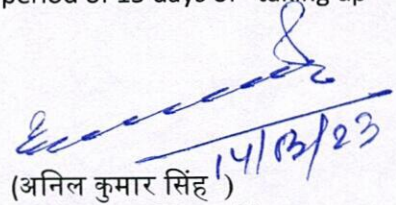 period of 15 days of taking up
14/03/23
(अनिल कुमार सिंह )